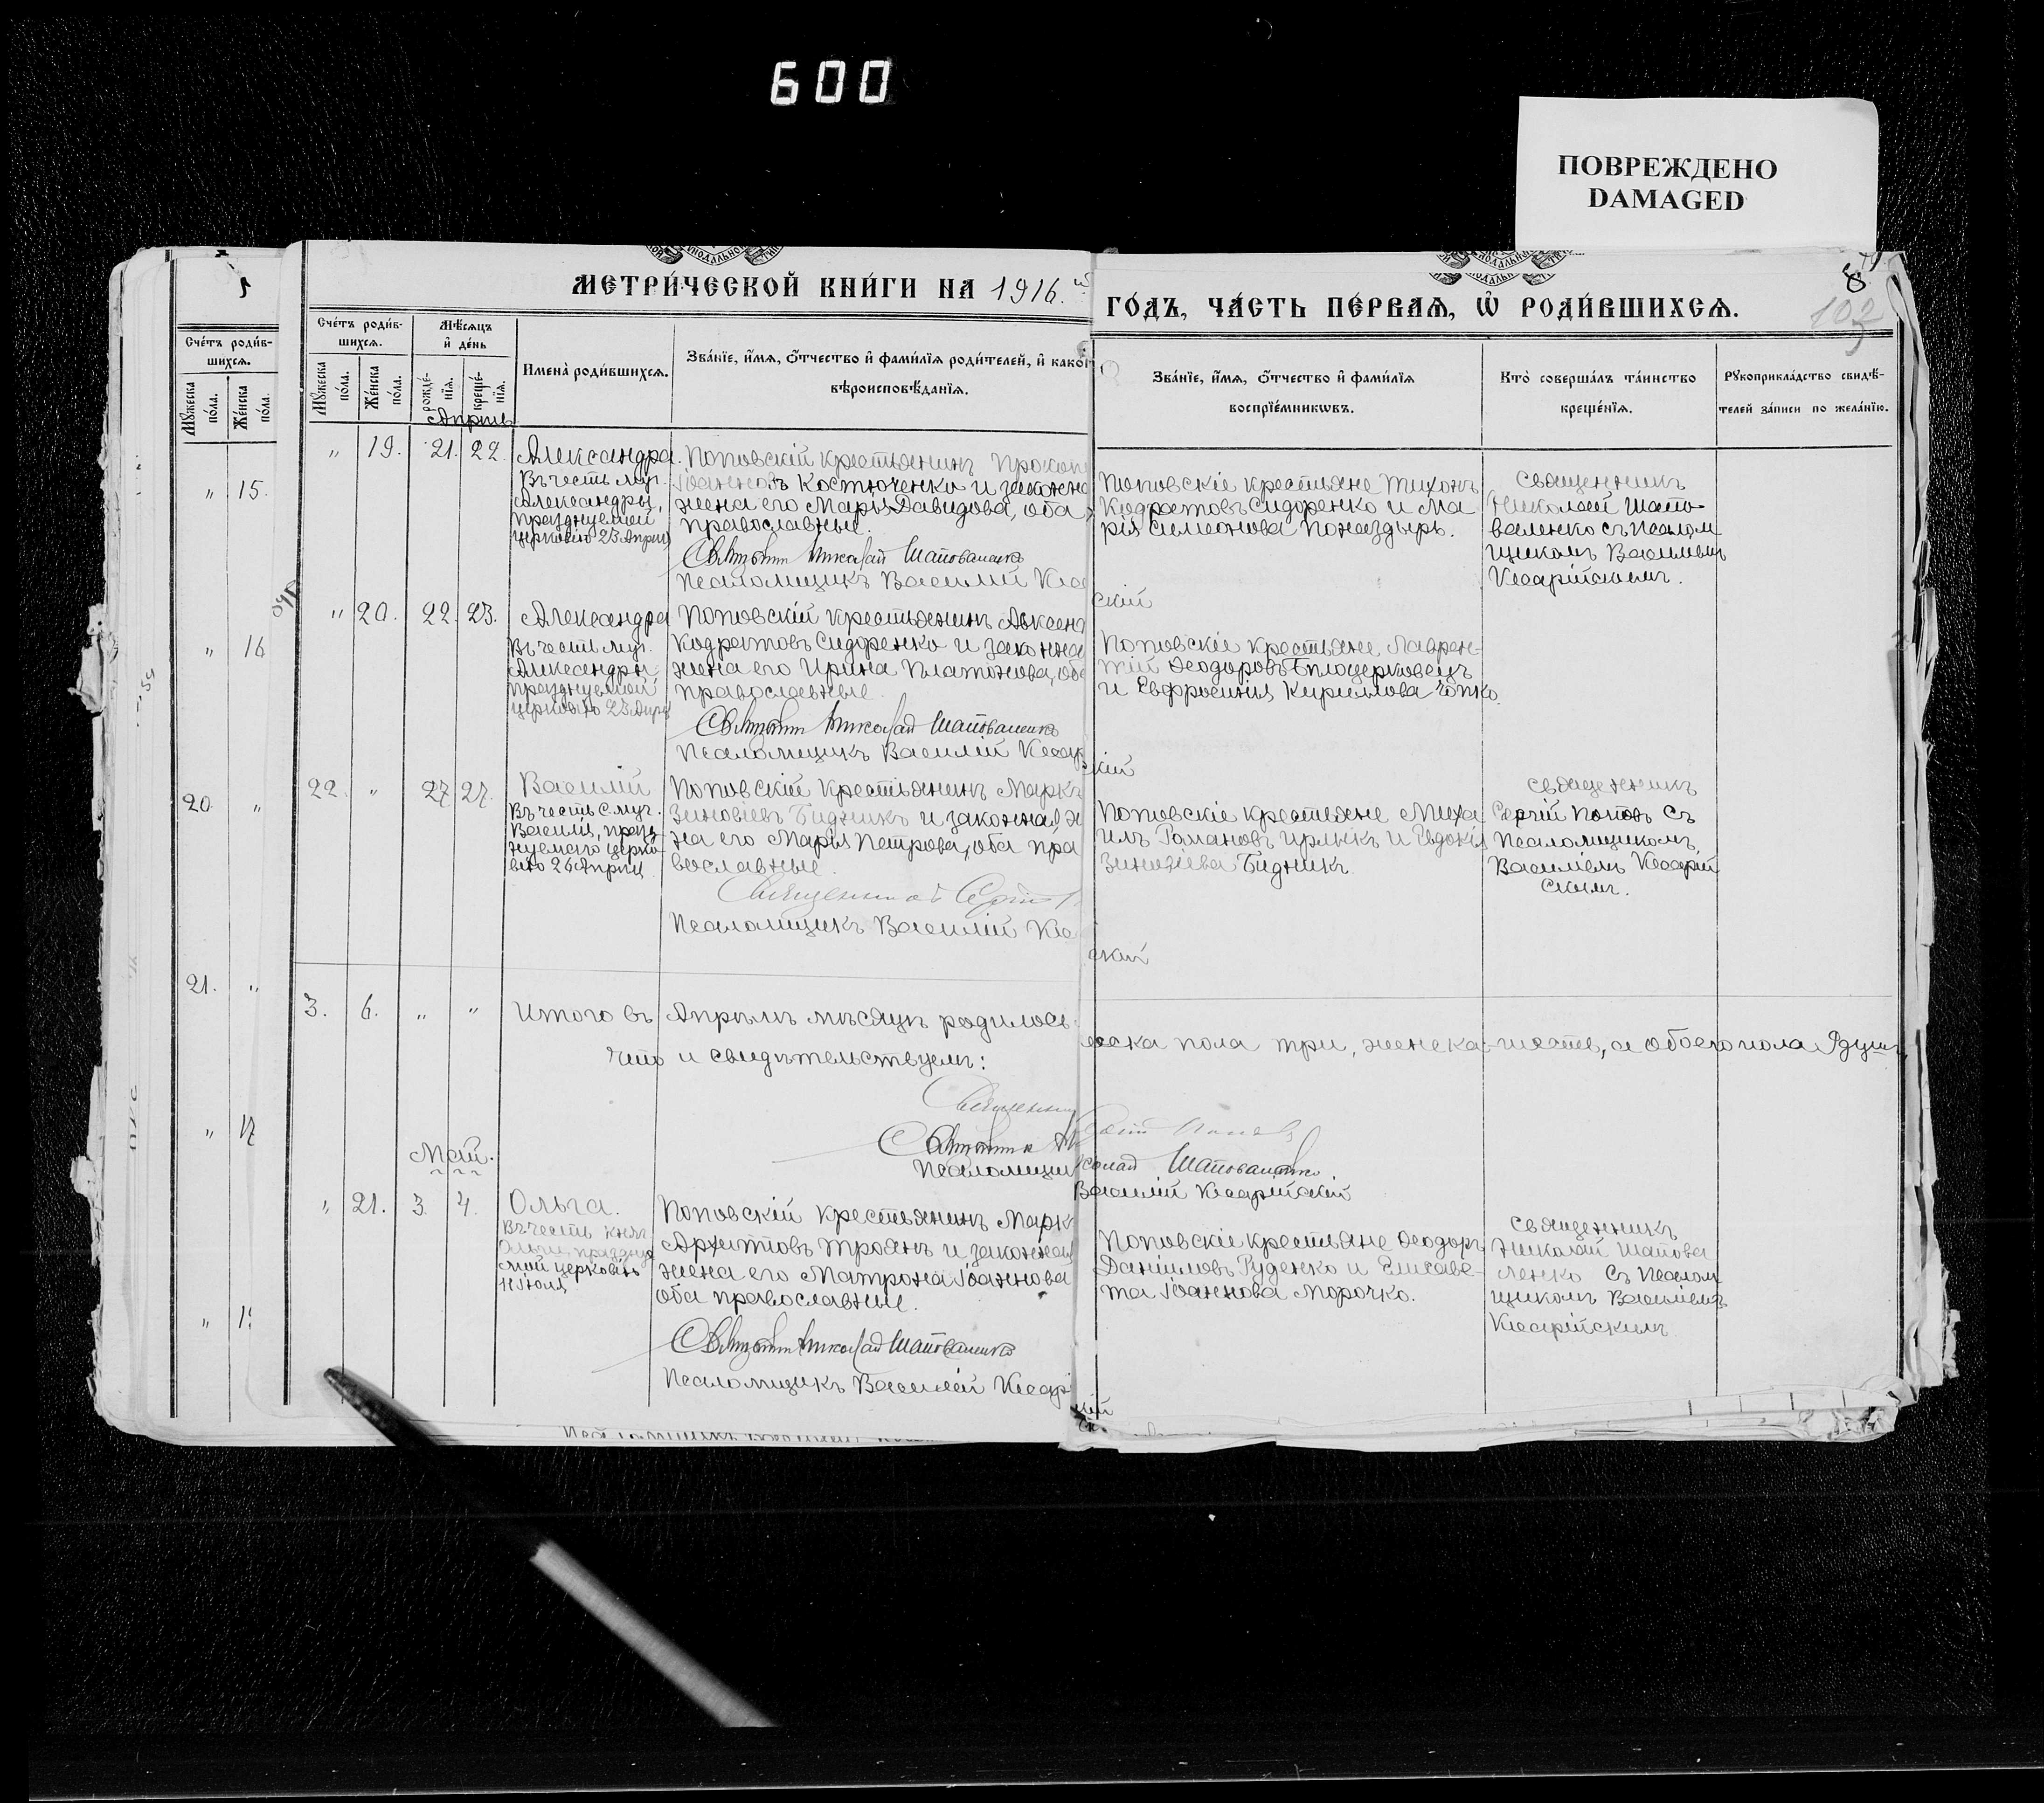 600
ПОВРЕЖДЕНО
DAMAGED
МЕТРИ́ЧЕСКОЙ КНИ́ГИ НА 1916.й
ГО́ДЪ, ЧА́СТЬ ПЕ́РВАЯ, Ѡ҆ РОДИ́ВШИХСЯ.
8
102
Сче́тъ роди́в-
шихся.
Мꙋжеска по́ла.
Же́нска по́ла.
" 15.
" 16
20. "
21. "
" 17
Сче́тъ роди́в-
шихся.
Мꙋжеска по́ла.
Же́нска по́ла.
Мѣ́сяцъ
и҆ де́нь
рожде́-
нія.
креще́-
нія.
Имена̀ роди́вшихся.
Зва́нїе, и҆́мя, ѻ҆́тчество и҆ фами́лїя роди́телей, и҆ како́г
вѣроисповѣ́данїя.
Зва́нїе, и҆́мя, ѻ҆́тчество и҆ фами́лїя
воспрїе́мникѡвъ.
Кто̀ соверша́лъ та́инство
креще́нїя.
Рꙋкоприкла́дство свидѣ́-
телей за́писи по жела́нїю.
Апрѣль
" 19. 21. 22. Александра.
Въ честь муч.
Александры,
празднуемой
церковію 23 Апрѣл
Поповскій крестьянинъ Прокоп
Іоанновъ Костюченко и законна
жена его Марья Давидова, оба
православные.
Священникъ Николай Шаповаленко
Псаломщикъ Василій Кес
скій
Поповскіе крестьяне Тихонъ
Кодратовъ Сидоренко и Ма
рія Симеонова Поназдырь.
Священникъ
Николай Шапо-
валенко съ псалом
щикомъ Василіемъ
Кесарійскимъ.
" 20. 22. 23. Александра
Въ честь муч.
Александры
празднуемой
церковію 23 Апрѣл
Поповскій крестьянинъ Авксен
Кодратовъ Сидоренко и законна
жена его Ирина Платонова, оба
православные.
Священникъ Николай Шаповаленко
Псаломщикъ Василій Кесар
скій
Поповскіе крестьяне Лаврен-
тій Ѳеодоровъ Бѣлоцерковецъ
и Евфросинія Кириллова
22. " 27 27. Василій
Въ честь с. муч.
Василія, празд
нуемаго церко-
вію 26 Апрѣл
Поповскій крестьянинъ Маркъ
Зиновіевъ Бидникъ и законная ж
на его Марья Петрова, оба пра
вославные.
Священникъ Сергій П
Псаломщикъ Василій Кес
скій
Поповскіе крестьяне Миха
илъ Романовъ Ирлыкъ и Евдокія
Зиновіева Бидникъ.
Священникъ
Сергій Поповъ съ
псаломщикомъ
Василіемъ Кесарій
скимъ.
3. 6. " " Итого въ Апрѣлѣ мѣсяцѣ родилось
жеска пола три, женска - шесть, а обоего пола 9 душъ,
Что и свидѣтельствуемъ:
Священник
Сергій Поповъ
Священникъ Ни
колай Шаповаленко.
Псаломщик
Василій Кесарійскій
Май.
" 21. 3. 4. Ольга.
Въ честь княг.
Ольги, празднуе
мой церковію
11 Іюля
Поповскій крестьянинъ Марк
Архиповъ Троянъ и законная
жена его Матрона Іоаннова
оба православные.
Священникъ Николай Шаповаленко
Псаломщикъ Василій Кесар
кій
Поповскіе крестьяне Ѳеодоръ
Даніиловъ Руденко и Елисаве-
та Іоаннова Морочко.
Священникъ
Николай Шапова
ленко съ псалом
щикомъ Василіемъ
Кесарійскимъ